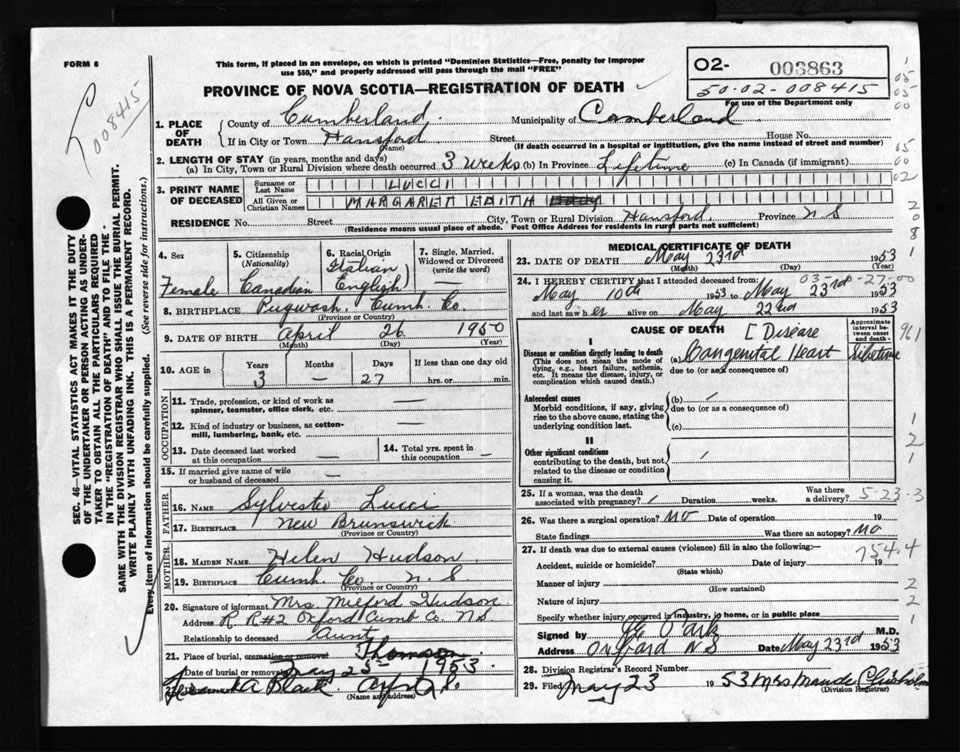 FORM 6
This form, if placed in an envelope, on which is printed "Dominion Statistics—Free, penalty for improper
use $50," and properly addressed will pass through the mail "FREE"
PROVINCE OF NOVA SCOTIA—REGISTRATION OF DEATH
O2- 003863
50-02-008415
For use of the Department only
008415
1. PLACE OF DEATH
County of Cumberland Municipality of Cumberland
If in City or Town Hansford Street House No.
(Name) (If death occurred in a hospital or institution, give the name instead of street and number)
2. LENGTH OF STAY (in years, months and days)
(a) In City, Town or Rural Division where death occurred 3 weeks (b) In Province Lifetime (c) In Canada (if immigrant)
3. PRINT NAME OF DECEASED
Surname or Last Name LUCCI
All Given or Christian Names MARGARET EDITH
RESIDENCE No. Street City, Town or Rural Division Hansford Province N S
(Residence means usual place of abode. Post Office Address for residents in rural parts not sufficient)
4. Sex Female
5. Citizenship (Nationality) Canadian
6. Racial Origin Italian English
7. Single, Married, Widowed or Divorced (write the word) —
8. BIRTHPLACE Pugwash, Cumb. Co.
(Province or Country)
9. DATE OF BIRTH April 26 1950
(Month) (Day) (Year)
10. AGE in Years 3 Months — Days 27 If less than one day old hrs. or min.
OCCUPATION
11. Trade, profession, or kind of work as spinner, teamster, office clerk, etc. —
12. Kind of industry or business, as cotton-mill, lumbering, bank, etc. —
13. Date deceased last worked at this occupation —
14. Total yrs. spent in this occupation —
15. If married give name of wife or husband of deceased —
FATHER
16. NAME Sylvester Lucci
17. BIRTHPLACE New Brunswick
(Province or Country)
MOTHER
18. MAIDEN NAME Helen Hudson
19. BIRTHPLACE Cumb. Co. N. S
(Province or Country)
20. Signature of informant Mrs. Milford Hudson
Address R R#2 Oxford Cumb Co. NS
Relationship to deceased Aunt
21. Place of burial, cremation or removal Thomson
Date of burial or removal May 25 1953
Black
(Name and address)
MEDICAL CERTIFICATE OF DEATH
23. DATE OF DEATH May 23rd 1953
(Month) (Day) (Year)
24. I HEREBY CERTIFY that I attended deceased from:
03-27-00
May 10th 1953 to May 23rd 1953
and last saw her alive on May 22nd 1953
CAUSE OF DEATH
Approximate interval between onset and death
I
Disease or condition directly leading to death
(This does not mean the mode of dying, e.g., heart failure, asthenia, etc. It means the disease, injury, or complication which caused death.)
(a) Congenital Heart [Disease Lifetime
due to (or as a consequence of)
Antecedent causes
Morbid conditions, if any, giving rise to the above cause, stating the underlying condition last.
(b) /
due to (or as a consequence of)
(c)
II
Other significant conditions
contributing to the death, but not related to the disease or condition causing it. /
25. If a woman, was the death associated with pregnancy? / Duration weeks. Was there a delivery? 5-23-3
26. Was there a surgical operation? NO Date of operation 19
State findings Was there an autopsy? NO
27. If death was due to external causes (violence) fill in also the following:— 754.4
Accident, suicide or homicide? Date of injury 19
(State which)
Manner of injury
(How sustained)
Nature of injury
Specify whether injury occurred in industry, in home, or in public place
Signed by Park M.D.
Address Oxford N S Date May 23rd 1953
28. Division Registrar's Record Number
29. Filed May 23 1953 Mrs Maude Chisholm
(Division Registrar)
SEC. 46—VITAL STATISTICS ACT MAKES IT THE DUTY
OF THE UNDERTAKER OR PERSON ACTING AS UNDER-
TAKER TO OBTAIN ALL THE PARTICULARS REQUIRED
IN THE "REGISTRATION OF DEATH" AND TO FILE THE
SAME WITH THE DIVISION REGISTRAR WHO SHALL ISSUE THE BURIAL PERMIT.
WRITE PLAINLY WITH UNFADING INK. THIS IS A PERMANENT RECORD.
Every item of information should be carefully supplied. (See reverse side for instructions.)